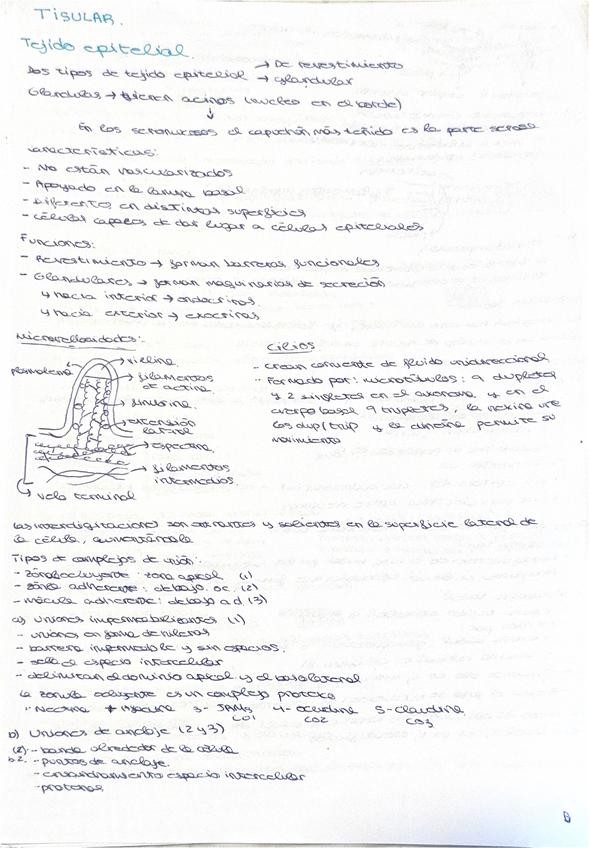 TISULAR.
Tejido epitelial.
Dos tipos de tejido epitelial → De revestimiento
→ glandular
Glandulas → tienen acinos (nucleo en el borde)
↓
En los seromucosos el capuchón más teñido es la parte serosa
características:
- No están vascularizados
- Apoyado en la lamina basal
- Diferentes en distintas superficies
- células capaces de dar lugar a células epiteliales
Funciones:
- Revestimiento → forman barreras funcionales
- Glandulares → forman maquinarias de secreción
↳ hacia interior → endocrinas.
↳ hacia exterior → exocrinas
Microvellosidades:
plasmalema
villina
filamentos de actina
fimbrina
extensión lateral
espectrina
filamentos intermedios.
velo terminal
cilios
- crean corriente de fluido unidireccional
- Formado por: microtúbulos: 9 dupletes
y 2 singletes en el axonema y en el
cuerpo basal 9 tripletes, la nexina une
los dup/trip y la dineína permite su
movimiento
Las interdigitaciones son entrantes y salientes en la superficie lateral de
la célula, aumentándola
Tipos de complejos de unión:
- zónula ocluyente: zona apical (1)
- zónula adherente: debajo oc. (2)
- mácula adherente: debajo a.d. (3)
a) Uniones impermeabilizantes (1)
- uniones en forma de hileras
- barrera impermeable y sin espacios.
- sella el espacio intercelular
- delimitan el dominio apical y el basolateral
La zónula ocluyente es un complejo proteico
3- JAMs 4- ocludina 5- claudina
CO1 CO2 CO3
b) Uniones de anclaje (2 y 3)
(2) - banda alrededor de la célula
b2. - puntos de anclaje.
- ensanchamiento espacio intercelular